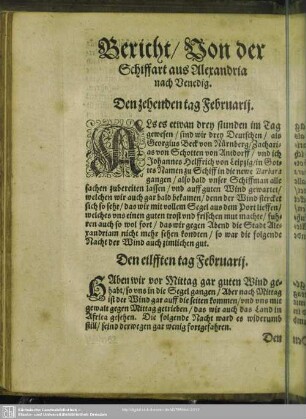 Bericht/ Von der
Schiffart aus Alexandria
nach Venedig.
Den zehenden tag Februarij.
ALs es etwan drey stunden im Tag
gewesen / sind wir drey Deutschen / als
Georgius Beck von Nürnberg/ Zachari-
as von Schotten von Andorff / vnd ich
Johannes Helffrich von Leipzig/ in Got-
tes Namen zu Schiff in die newe Barbara
gangen/ also bald vnser Schiffman alle
sachen zubereiten lassen / vnd auff guten Wind gewartet/
welchen wir auch gar bald bekamen / denn der Wind stercket
sich so sehr / das wir mit vollem Segel aus dem Port lieffen/
welches vns einen guten trost vnd frischen mut machte/ fuh-
ren auch so wol fort / das wir gegen Abend die Stadt Ale-
xandriam nicht mehr sehen kondten / so war die folgende
Nacht der Wind auch zimlichen gut.
Den eilfften tag Februarij.
HAben wir vor Mittag gar guten Wind ge-
habt/ so vns in die Segel gangen / Aber nach Mittag
ist der Wind gar auff die seiten kommen / vnd vns mit
gewalt gegen Mittag getrieben / das wir auch das Land in
Africa gesehen. Die folgende Nacht ward es widerumb
still / seind derwegen gar wenig fortgefahren.
Den